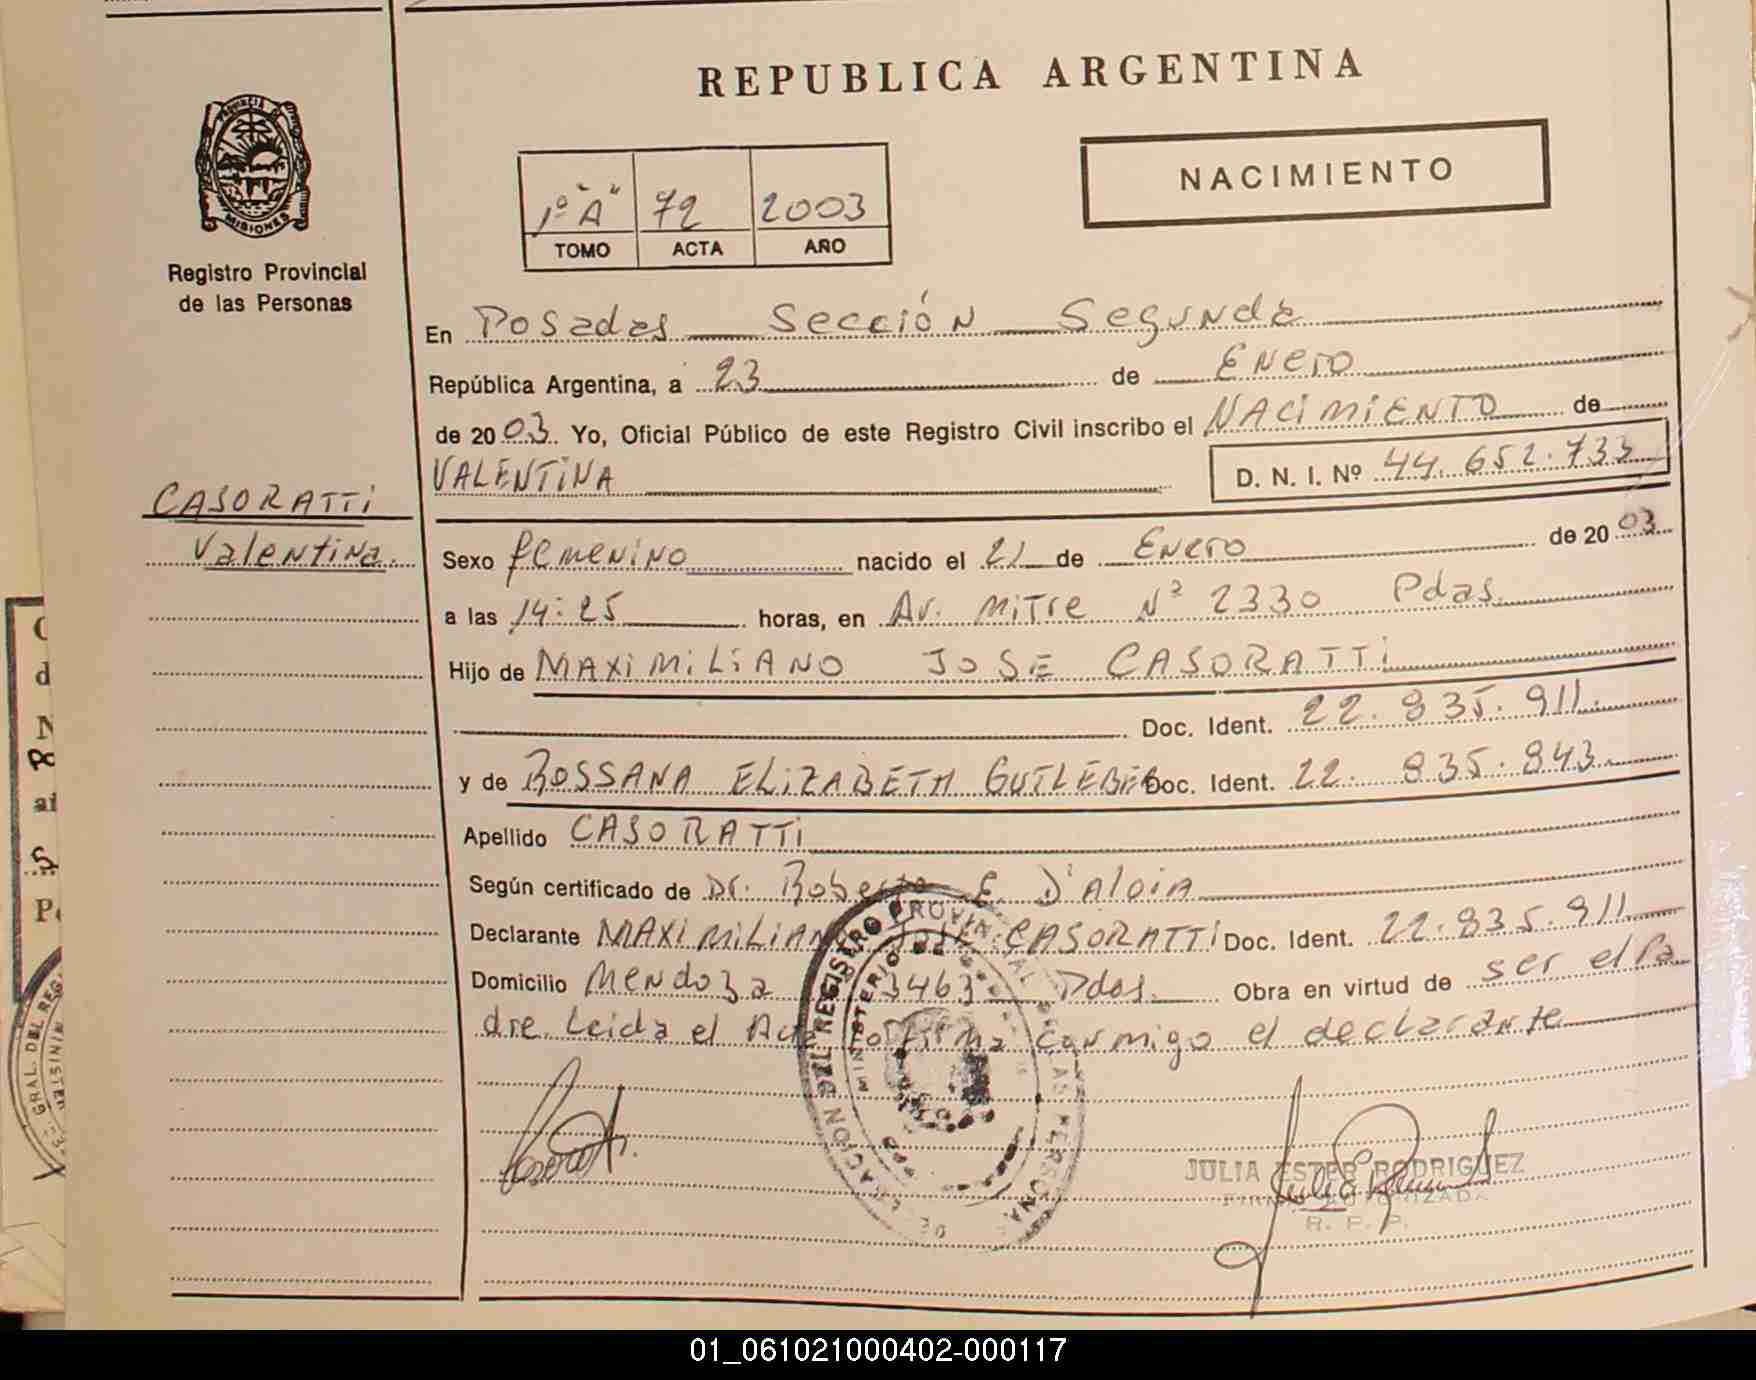 REPUBLICA ARGENTINA
NACIMIENTO
1º "A" 72 2003
TOMO ACTA AÑO
PROVINCIA DE MISIONES
Registro Provincial
de las Personas
En Posadas Sección Segunda
República Argentina, a 23 de Enero
de 2003. Yo, Oficial Público de este Registro Civil inscribo el NACIMIENTO de
VALENTINA D. N. I. Nº 44.652.733
CASORATTI
Valentina.
Sexo femenino nacido el 21 de Enero de 2003
a las 14:25 horas, en Av. Mitre Nº 2330 Pdas.
Hijo de MAXIMILIANO JOSE CASORATTI
Doc. Ident. 22.835.911.
y de ROSSANA ELIZABETH GUTLEBER Doc. Ident. 22.835.843
Apellido CASORATTI
Según certificado de Dr. Roberto E. D'Aloia
Declarante MAXIMILIANO JOSE CASORATTI Doc. Ident. 22.835.911
Domicilio Mendoza 3463 Pdas. Obra en virtud de ser el Pa
dre. Leida el Acta la firma conmigo el declarante
JULIA ESTER RODRIGUEZ
FIRMA AUTORIZADA
R. P. P.
01_061021000402-000117